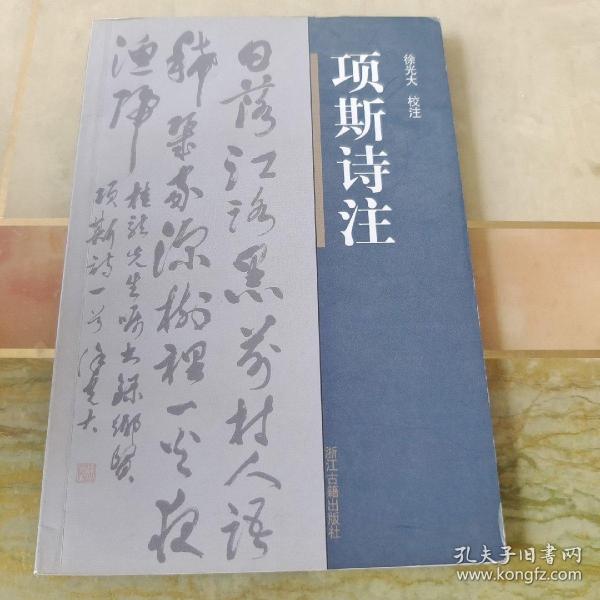 项斯诗注
徐光大 校注
日落江路黑前村人语
稀几家深树里一火夜
渔归
桂龙先生嘱书录乡贤
项斯诗一首徐光大
浙江古籍出版社
孔夫子旧书网
www.kongfz.com